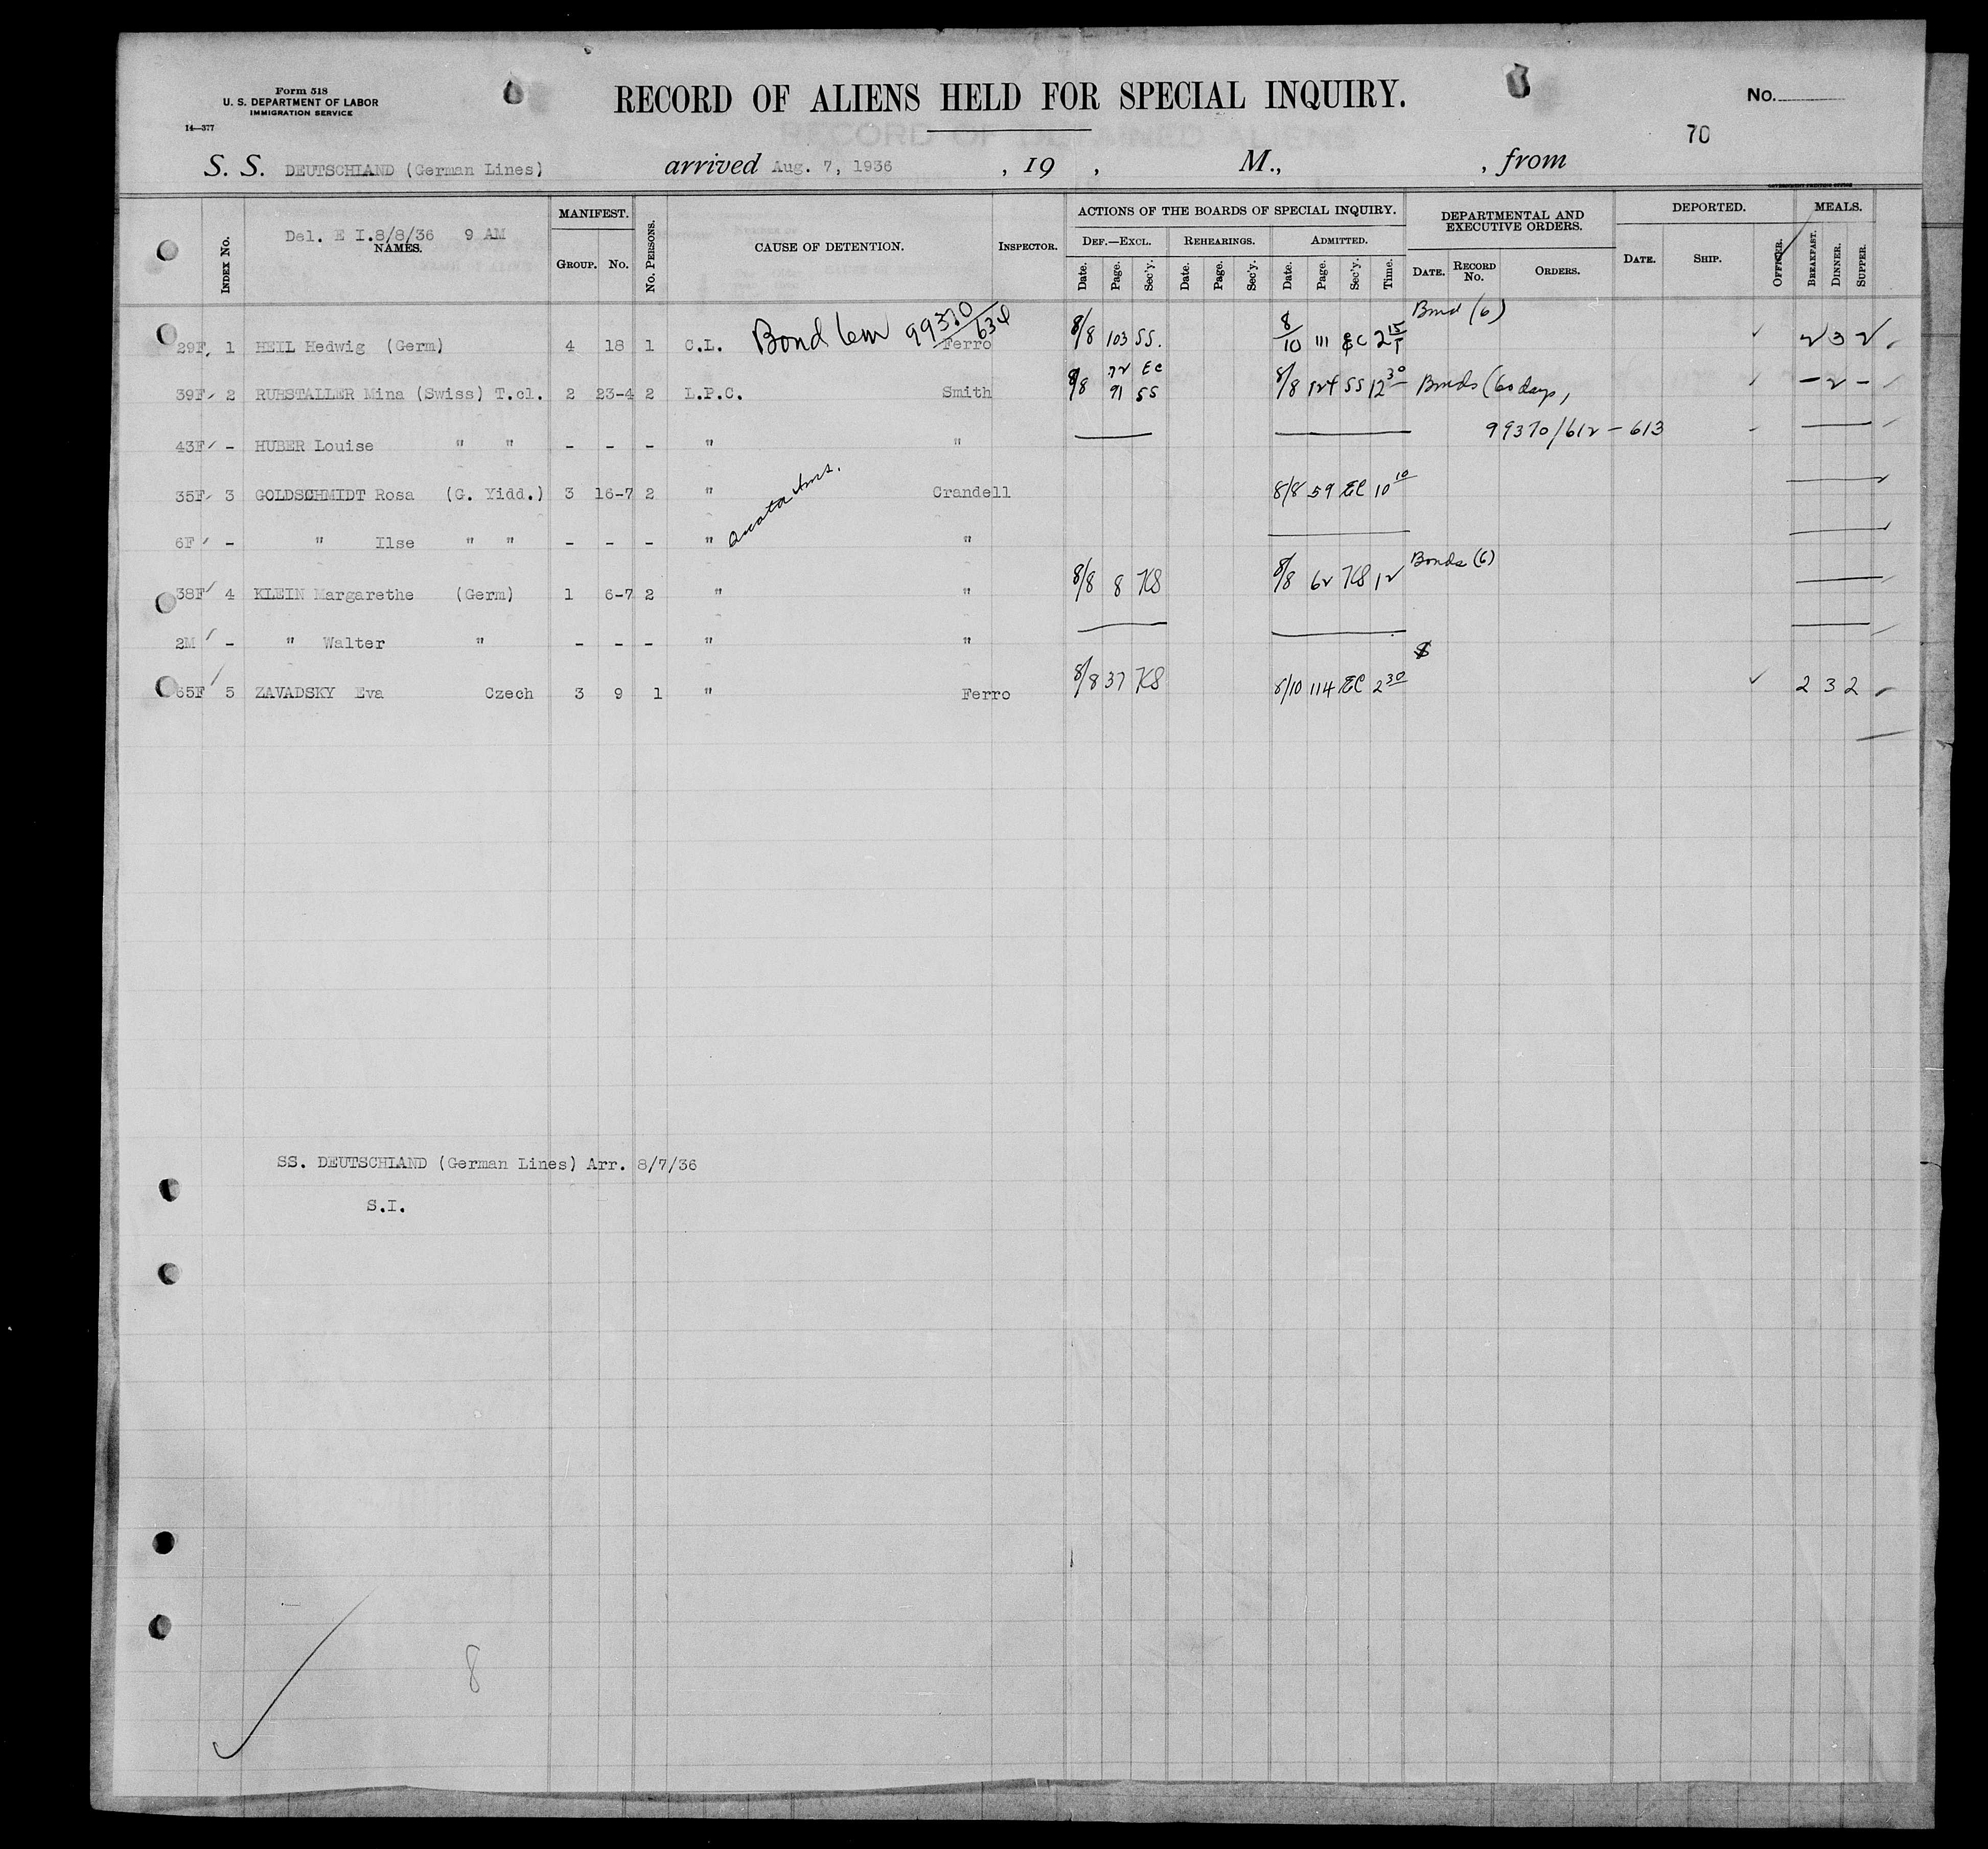 Form 518
U. S. DEPARTMENT OF LABOR
IMMIGRATION SERVICE
14—377
RECORD OF ALIENS HELD FOR SPECIAL INQUIRY.
No.
70
S. S. DEUTSCHLAND (German Lines) arrived Aug. 7, 1936 , 19 , M., , from
GOVERNMENT PRINTING OFFICE
Index No. Del. E I.8/8/36 9 AM NAMES. MANIFEST. Group. No. No. Persons. CAUSE OF DETENTION. Inspector. ACTIONS OF THE BOARDS OF SPECIAL INQUIRY. Def.—Excl. Date. Page. Sec'y. Rehearings. Date. Page. Sec'y. Admitted. Date. Page. Sec'y. Time. DEPARTMENTAL AND EXECUTIVE ORDERS. Date. Record No. Orders. DEPORTED. Date. Ship. Officer. MEALS. Breakfast. Dinner. Supper.
29F 1 HEIL Hedwig (Germ) 4 18 1 C.L. Bond 6m 99370/634 Ferro 8/8 103 SS. 8/10 111 EC 2 15 Bond (6) 2 3 2
39F 2 RUHSTALLER Mina (Swiss) T.cl. 2 23-4 2 L.P.C. Smith 8/8 72 EC 91 SS 8/8 124 SS 12 30 Bonds (60 days, – 2 –
43F - HUBER Louise " " - - - " " 99370/612 - 613
35F 3 GOLDSCHMIDT Rosa (G. Yidd.) 3 16-7 2 " Crandell 8/8 59 EC 10 10
6F - " Ilse " " - - - " "
38F 4 KLEIN Margarethe (Germ) 1 6-7 2 " " 8/8 8 KS 8/8 62 KS 12 Bonds (6)
2M - " Walter " - - - " "
65F 5 ZAVADSKY Eva Czech 3 9 1 " Ferro 8/8 37 KS 8/10 114 EC 2 30 2 3 2
SS. DEUTSCHLAND (German Lines) Arr. 8/7/36
S.I.
8